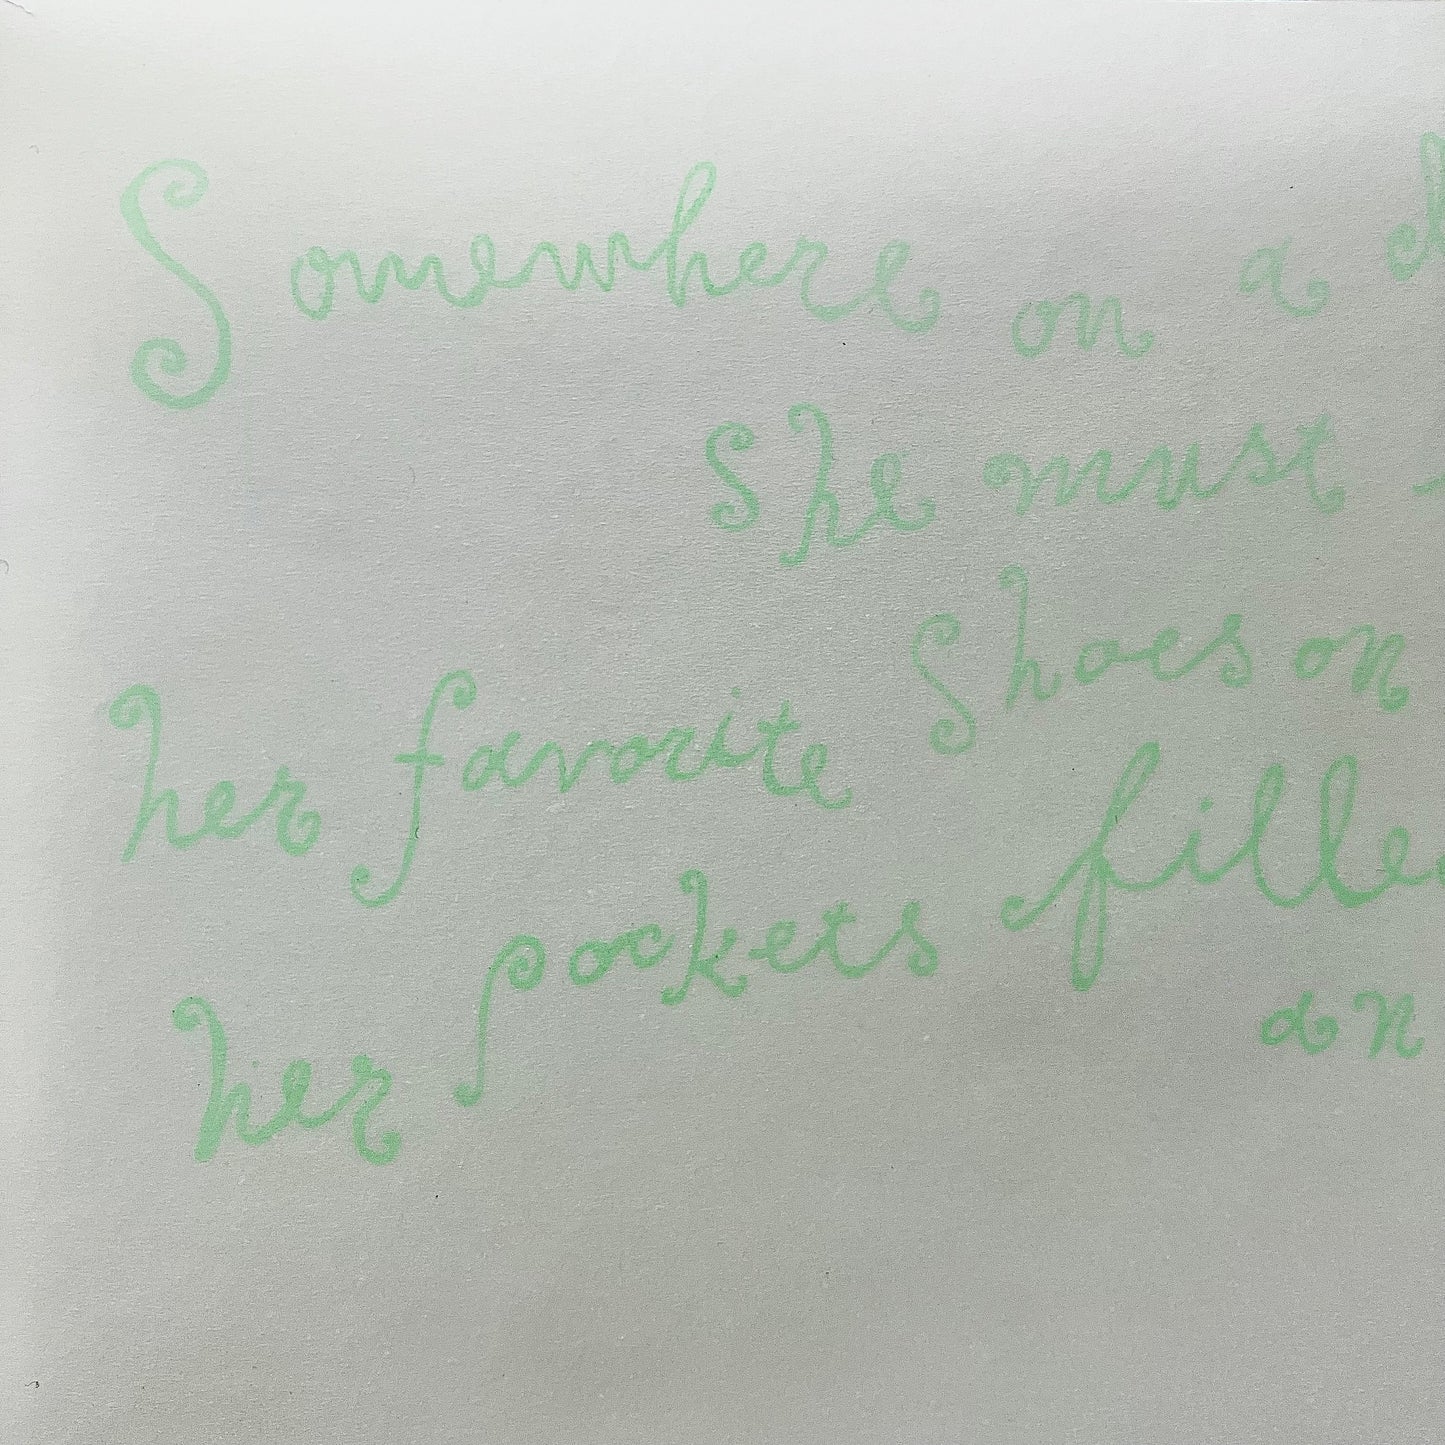 Somewhere on a
she must
her favorite shoes on
her pockets filled
an